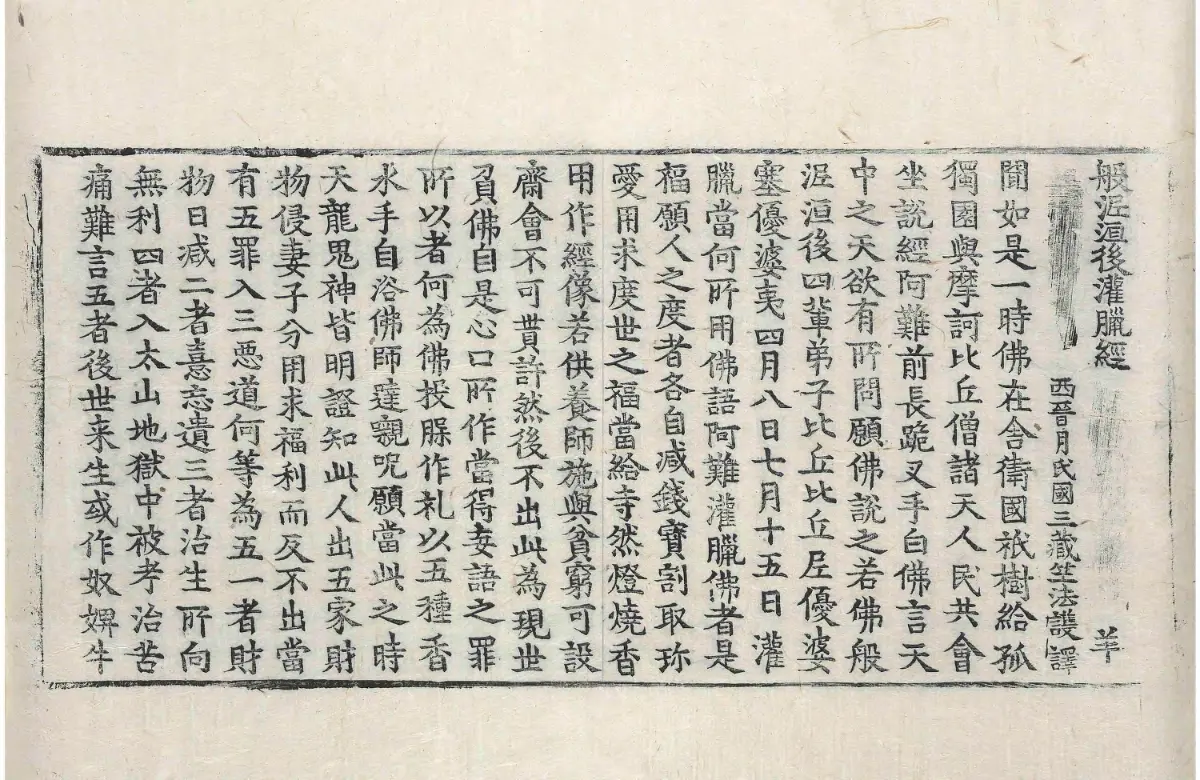 般泥洹後灌臘經 羊
西晉月氏國三藏竺法護譯
聞如是一時佛在舍衛國祇樹給孤
獨園與摩訶比丘僧諸天人民共會
坐說經阿難前長跪叉手白佛言天
中之天欲有所問願佛說之若佛般
泥洹後四軰弟子比丘比丘尼優婆
塞優婆夷四月八日七月十五日灌
臘當何所用佛語阿難灌臘佛者是
福願人之度者各自减錢寶割取珎
愛用求度世之福當給寺然燈燒香
用作經像若供養師施與貧窮可設
齋會不可貰許然後不出此為現世
負佛自是心口所作當得妄語之罪
所以者何為佛投腂作礼以五種香
水手自浴佛師達嚫呪願當此之時
天龍鬼神皆明證知此人出五家財
物侵妻子分用求福利而反不出當
有五罪入三惡道何等為五一者財
物日减二者憙忘遺三者治生所向
無利四者入太山地獄中被考治苦
痛難言五者後世来生或作奴婢牛